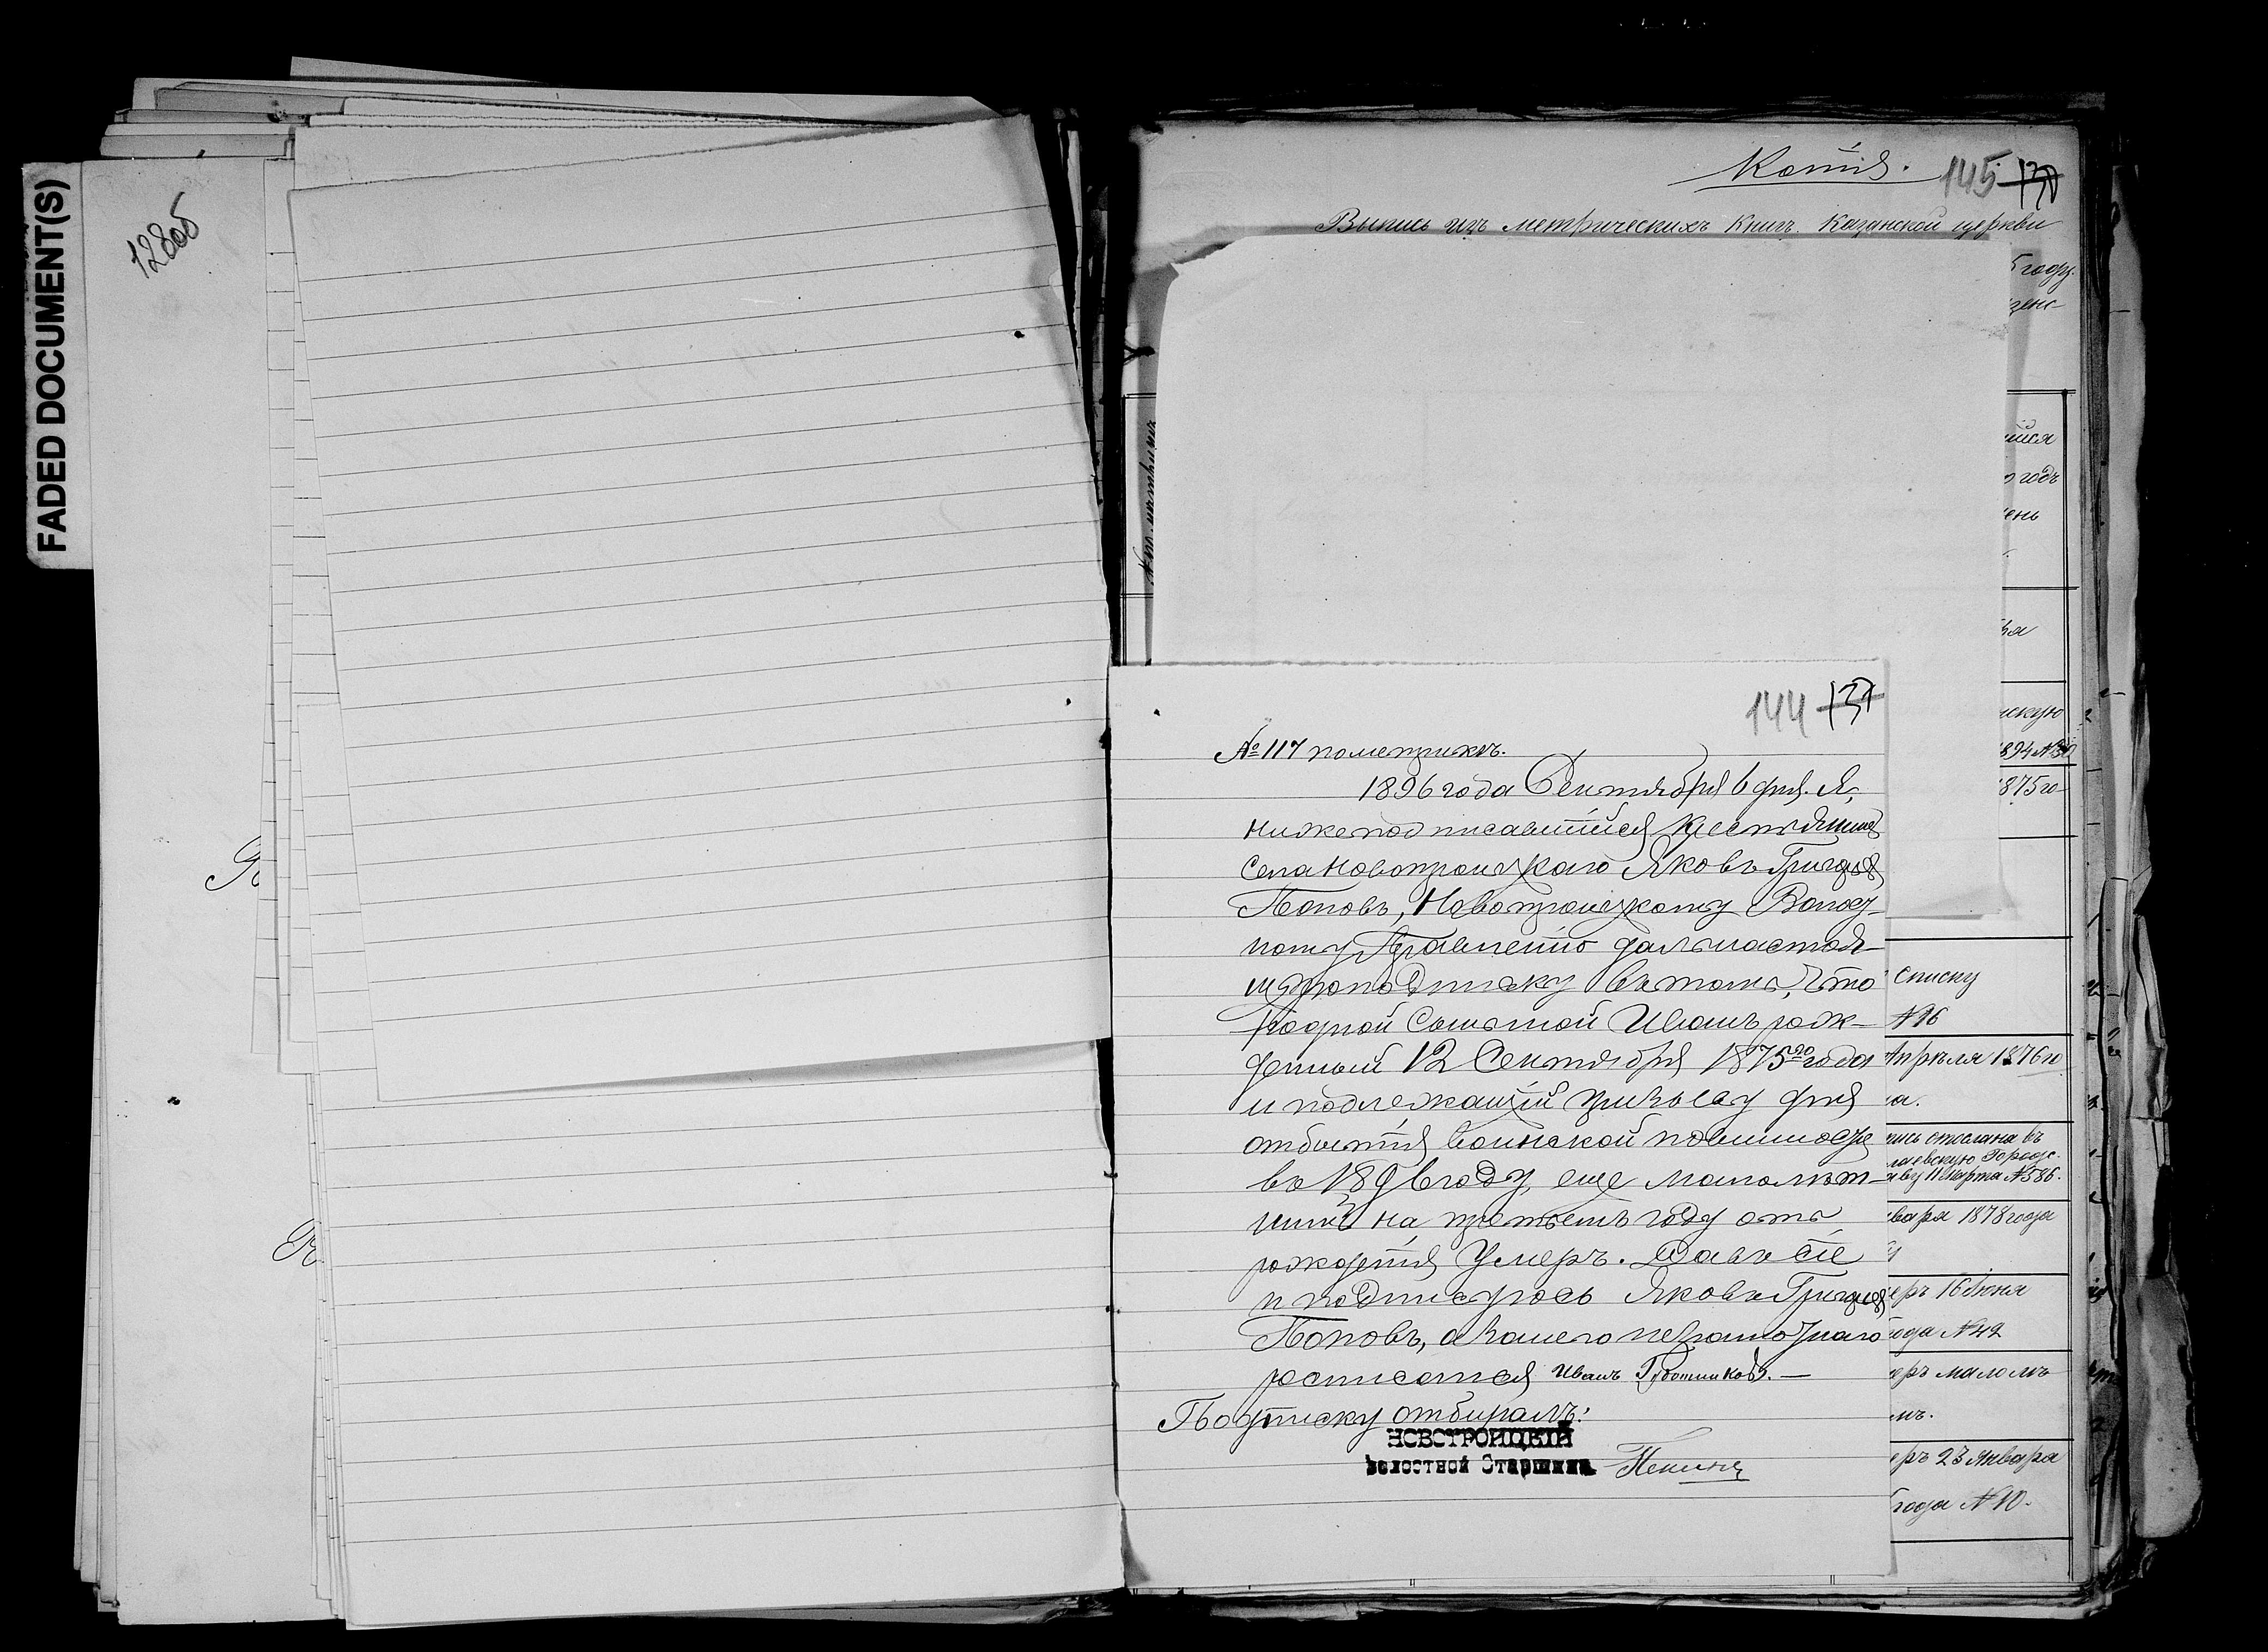 FADED DOCUMENT(S)
128об
Копія.
145
Выпись изъ метрическихъ книгъ Казанской церкви
5 году.
зенс-
шійся
годъ
ень
скую
1894 №
1875 го
144
№ 117 пометрикѣ.
1896 года Сентября 6 дня. Я,
нижеподписавшійся крестьянинъ
села Новотроицкаго Яковъ Григорьев
Поповъ, Новотроицкому Волост-
ному Правленію далъ настоя-
щую подписку въ томъ, что
родной сынъ мой Иванъ рож-
денный 12 Сентября 1875го года
и подлежащій призыву для
отбытія воинской повинности
въ 1896 году, еще малолѣт-
ній на третьемъ году отъ
рожденія умеръ. Далъ сіе
и подписуюсь Яковъ Григорьев
Поповъ, а за него неграмотнаго
росписался Иванъ
Подписку отбиралъ:
НОВОТРОИЦКІЙ
Волостной Старшина
списку
№ 16
Апрѣля 1876 го
а.
пись отослана въ
лаевскую Городс.
аву 11 Марта № 586.
варя 1878 года
еръ 16 Іюня
года № 42
еръ малолѣ
мъ.
еръ 23 Января
года № 10.